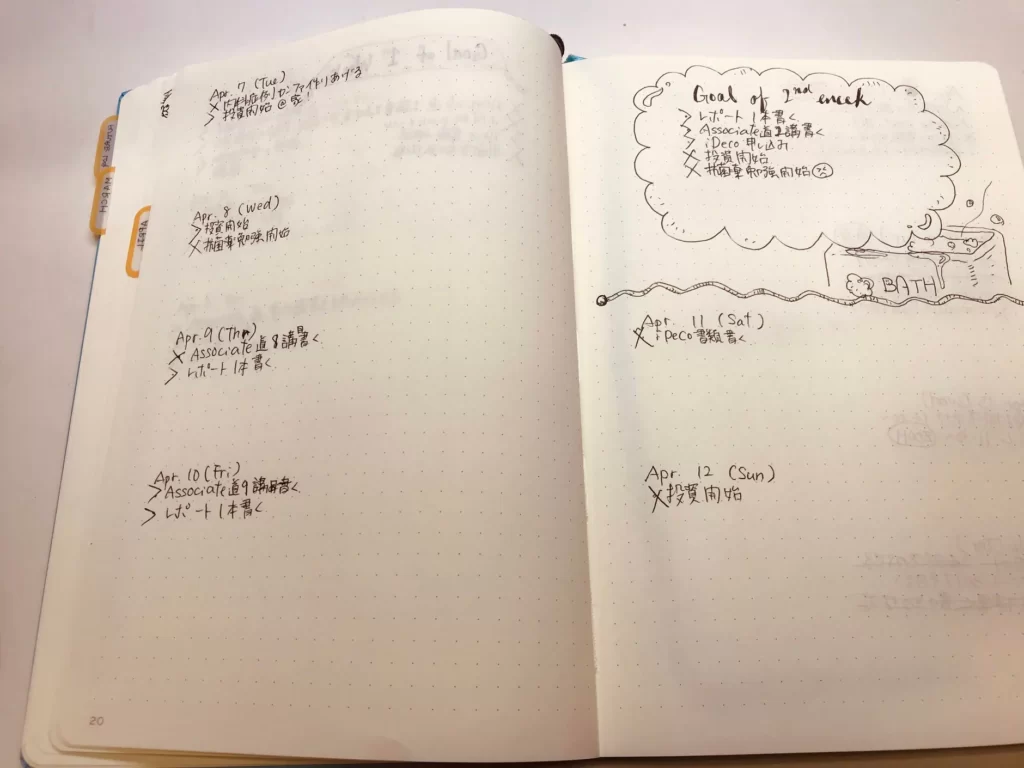 Apr. 7 (Tue)
× 内科症例 ファイルりあげる
> 投資開始 @家!
Apr. 8 (Wed)
> 投資開始
× 抗菌薬勉強開始
Apr. 9 (Thr)
× Associate道8講書く
> レポート1本書く
Apr. 10 (Fri)
> Associate道9講書く
> レポート1本書く
20
MARCH
APRIL
Goal of 2nd week
> レポート1本書く
> Associate道2講書く
> iDeco申し込み
× 投資開始
× 抗菌薬勉強開始
BATH
Apr. 11 (Sat)
× iDeco書類書く
Apr. 12 (Sun)
× 投資開始